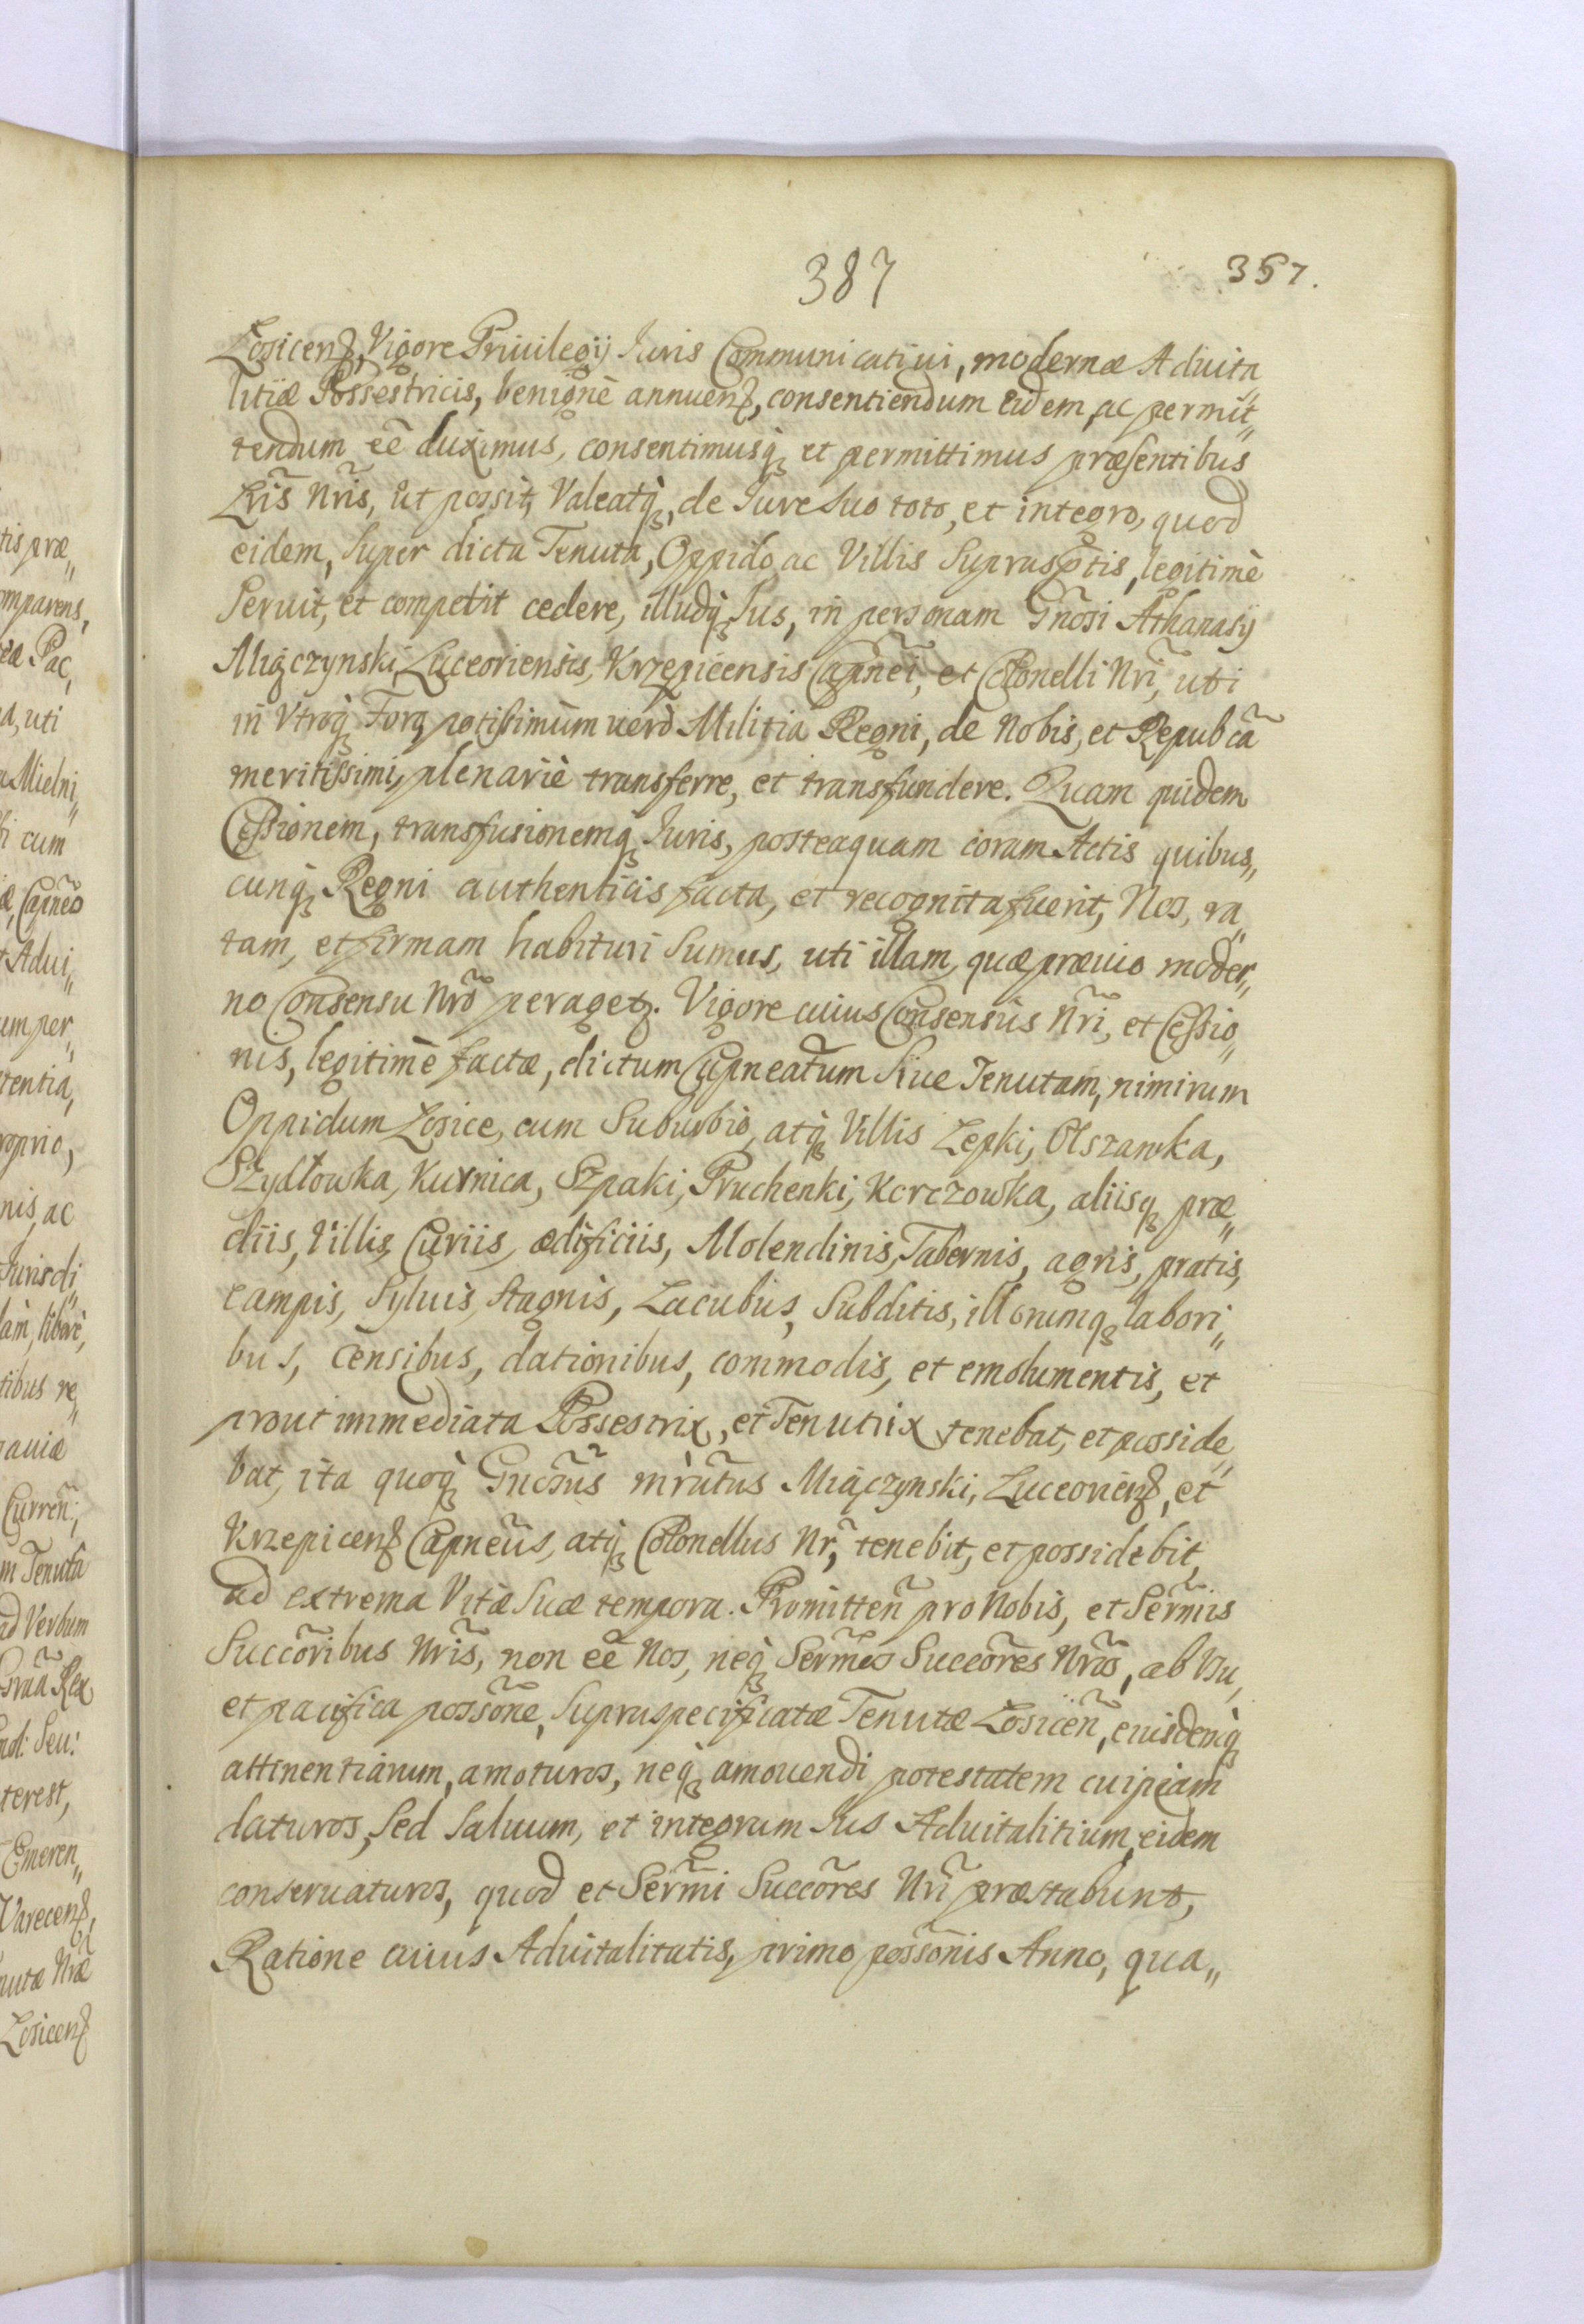 387
357.
Łosicenß, Vigore Priuilegij Iuris Communicatiui, modernæ Aduita„
litiæ Possestricis, benignè annuenß, consentiendum eidem, ac permit„
tendum eẽ duximus, consentimusq₃ et permittimus præsentibus
Lr̃is Nr̃is, ut possit, Valeatq₃, de Iure Suo toto, et integro, quod
eidem, Super dicta Tenuta, Oppido, ac Villis Suprasc̃ptis, legitimè
Seruit, et competit cedere, illudq₃ Ius, in personam Gñosi Athanasij
Miączynski, Luceoriensis, Krzepicensis Capnei, et Colonelli Nr̃i, uti
in Vtroq₃ Foro, potissimùm uerò Militia Regni, de Nobis, et Republca
meritissimi, plenariè transferre, et transfundere. Quam quidem
Cessionem, transfusionemq₃ Iuris, posteaquam coram Actis quibus„
cunq₃ Regni authenticis facta, et recognita fuerit, Nos, ra„
tam, et firmam habituri Sumus, uti illam, quæ præuio moder„
no Consensu Nr̃o peragetꝫ. Vigore cuius Consensûs Nr̃i, et Cessio„
nis, legitimè factæ, dictum Capneatum Siue Tenutam, nimirum
Oppidum Łosice, cum Suburbio, atq₃ Villis Łepki, Olszanka,
Szydłowka, Kurnica, Szpaki, Pruchenki, Korczowka, aliisq₃ præ„
diis, Villis, Curiis, ædificiis, Molendinis, Tabernis, agris, pratis,
campis, Syluis, Stagnis, Lacubus, Subditis, illorumq₃ labori„
bus, censibus, dationibus, commodis, et emolumentis, et
prout immediata Possestrix, et Tenutrix tenebat, et posside„
bat, ita quoq₃ Gnõsus mr̃atus Miączynski, Luceorienß, et
Krzepicenß Capneus, atq₃ Colonellus Nr̃, tenebit, et possidebit,
ad extrema Vitæ Suæ tempora. Promitten̄ pro Nobis, et Sermis
Succõribus Nr̃is, non eẽ Nos, neq₃ Sermos Succõres Nr̃os, ab Vsu,
et pacifica possõne, Supraspecificatæ Tenutæ Łosicen̄, eiusdemq₃
attinentiarum, amoturos, neq₃ amouendi potestatem cuipiam
daturos, Sed Saluum, et integrum Ius Aduitalitium, eidem
conseruaturos, quod et Sermi Succõres Nr̃i præstabunt,
Ratione cuius Aduitalitatis, primo possõnis Anno, qua„